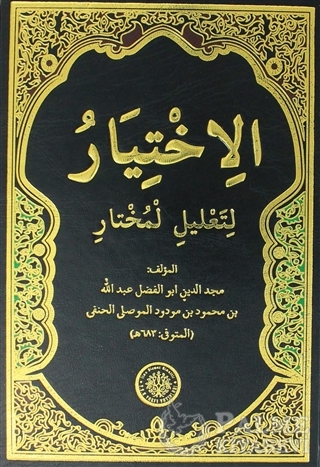 الِاخْتِيَارُ
لِتَعْلِيلِ لْمُخْتارِ
المؤلف:
مجد الدين ابو الفضل عبد الله
بن محمود بن مودود الموصلى الحنفى
(المتوفى: ٦٨٣هـ)